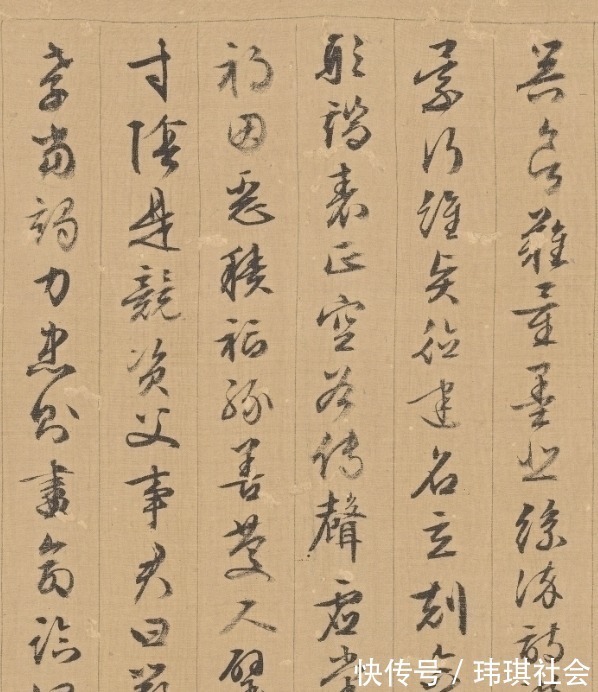 器欲難量墨悲絲染詩
景行維賢德建名立剋念
形端表正空谷傳聲虛堂
禍因惡積福緣善慶尺璧
寸陰是競資父事君曰嚴
孝當竭力忠則盡命臨深
快传号 / 玮琪社会